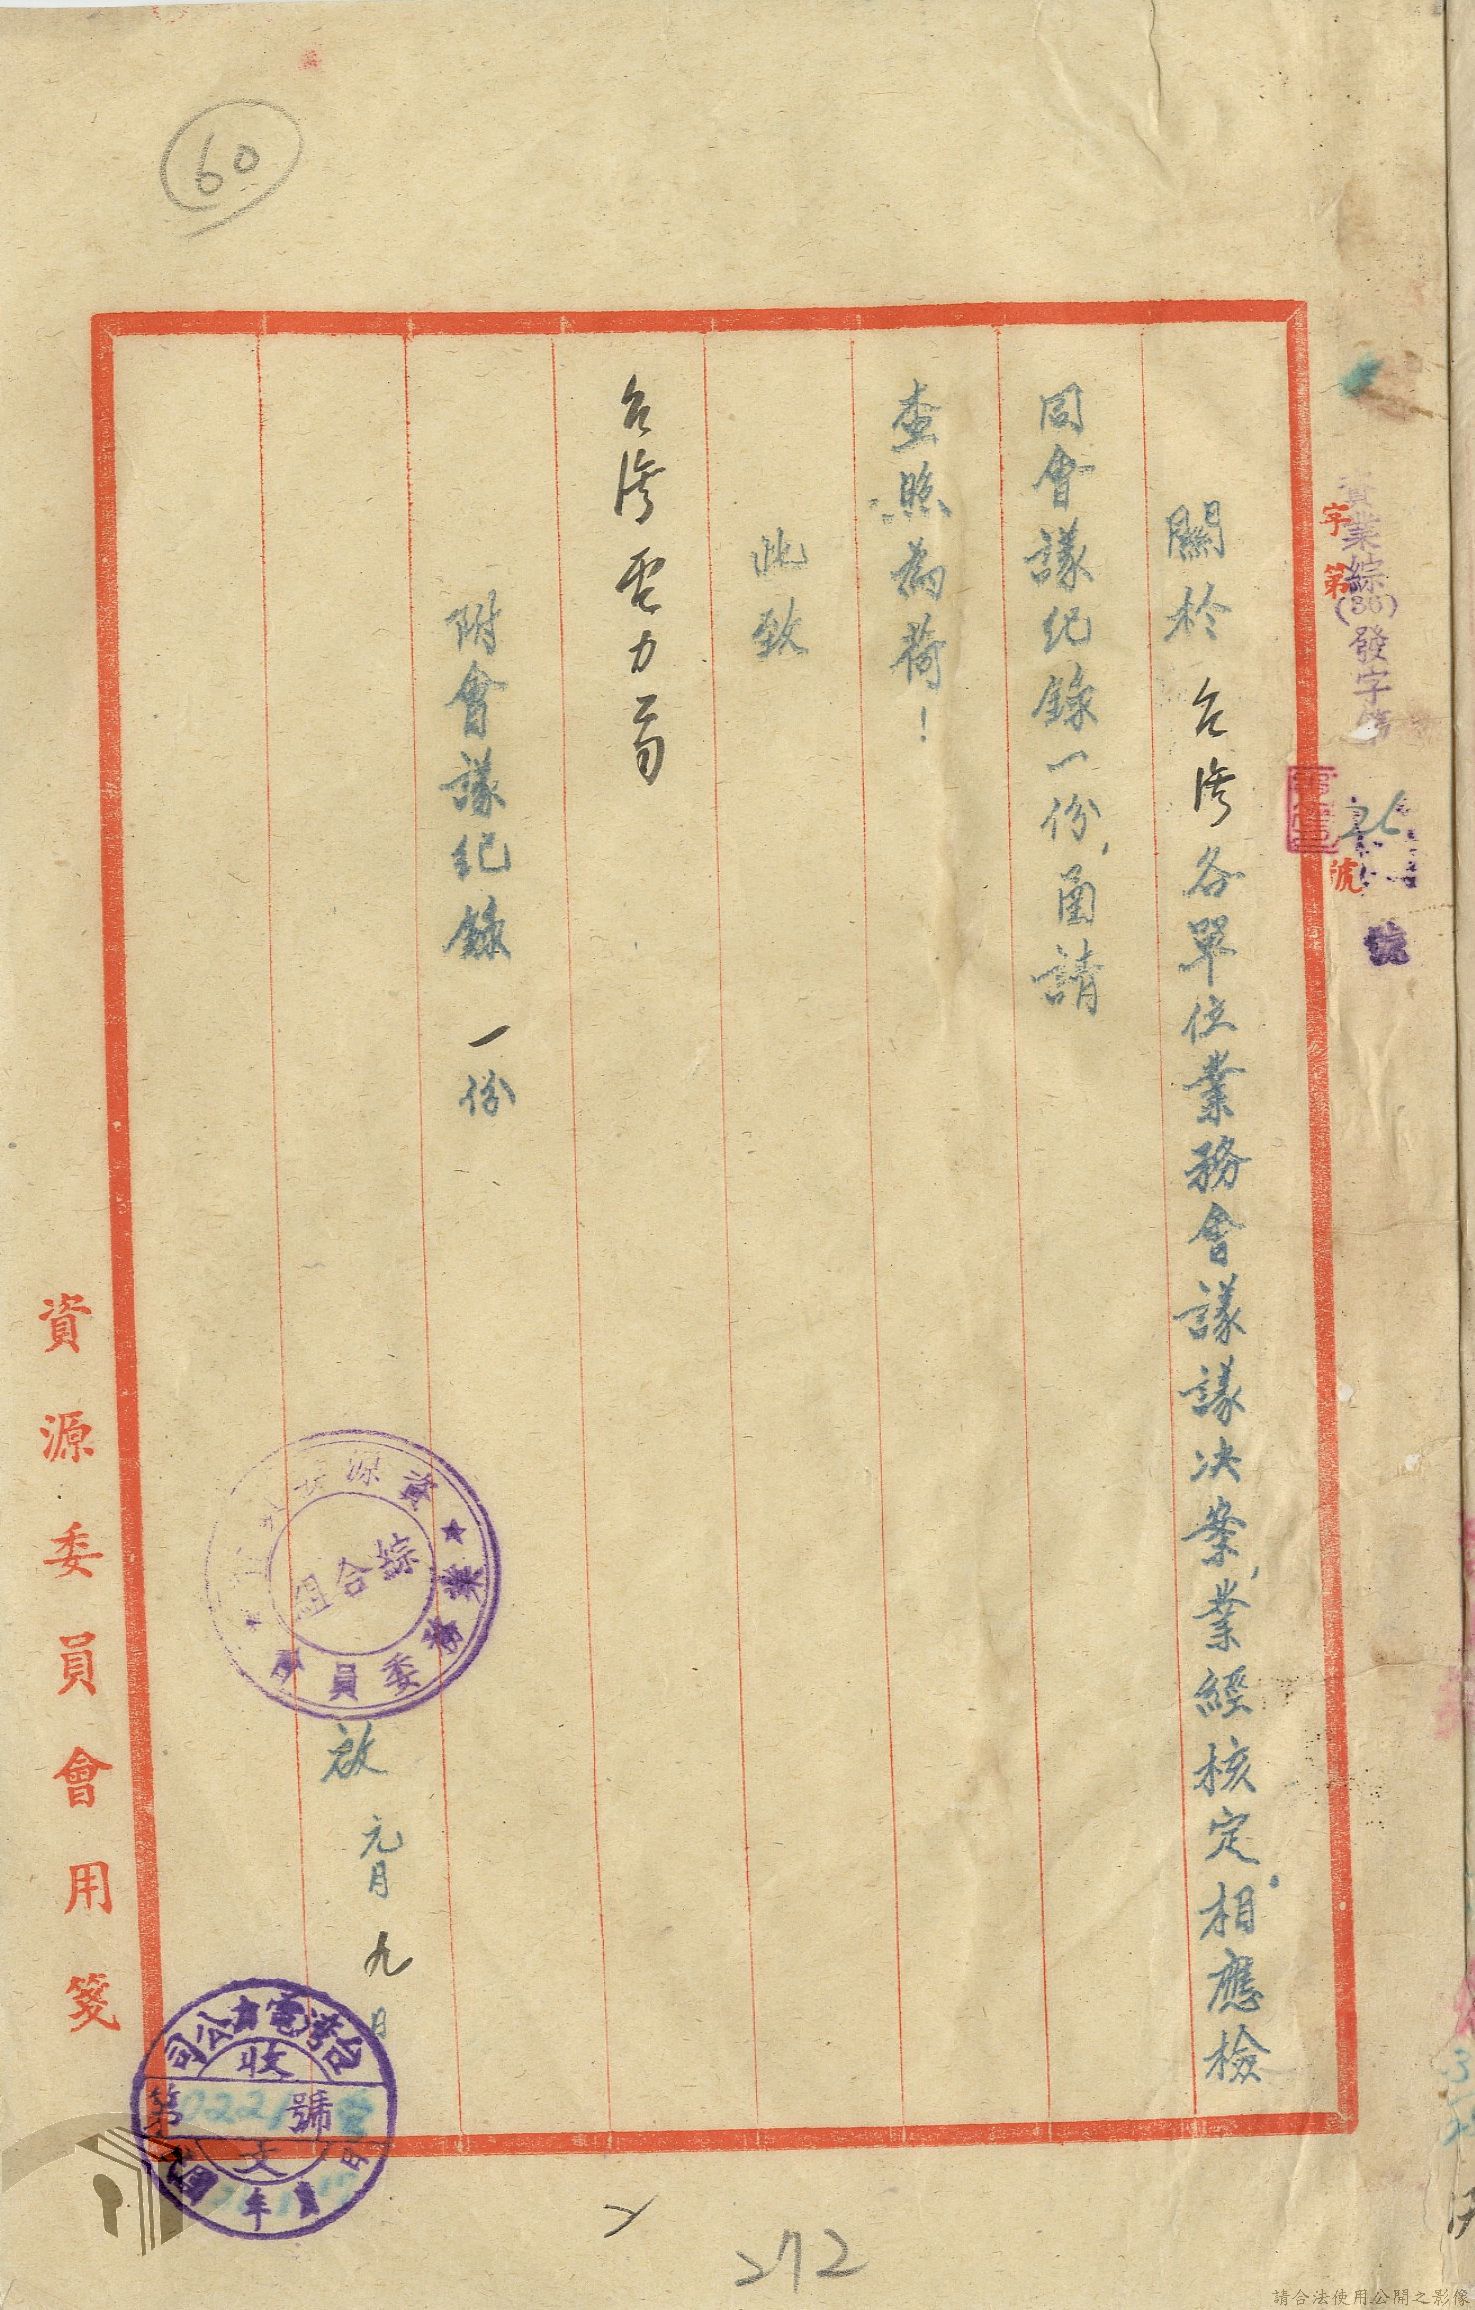 60
資業綜(36)發字第
字第
號
號
關於 台灣各單位業務會議議決案,業經核定。相應檢
同會議紀錄一份,函請
查照為荷!
此致
台灣電力公司
附會議紀錄 一份
資源委員會
業務委員會
綜合組
啟 元月九日
資源委員會用箋
台灣電力公司
收
第 號
文
年 月
272
請合法使用公開之影像